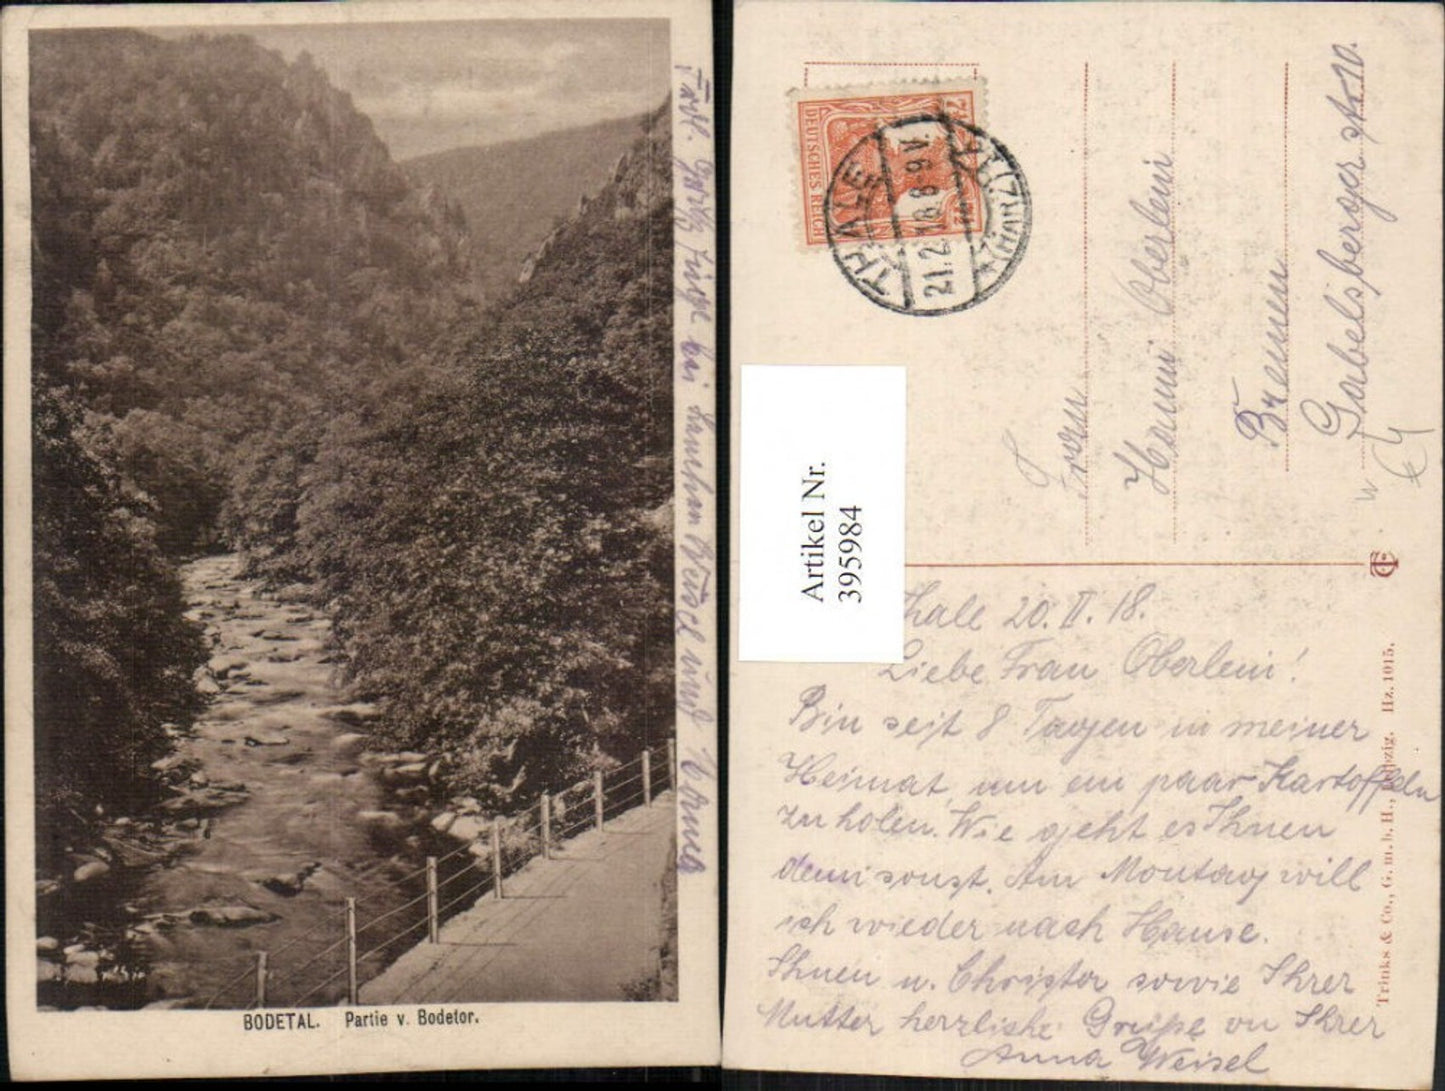 BODETAL. Partie v. Bodetor.
bei Hannchen Weisel und Erna
DEUTSCHES REICH
7½
THALE
(HARZ)
21.2.18.8-9V.
Frau
Hanni Oberleni
Bremen
Gabelsberger str 10.
Artikel Nr.
395984
Thale 20. II. 18.
Liebe Frau Oberleni!
Bin seit 8 Tagen in meiner
Heimat, um ein paar Kartoffeln
zu holen. Wie geht es Ihnen
denn sonst. Am Montag will
ich wieder nach Hause.
Ihnen u. Christa sowie Ihrer
Mutter herzliche Grüße von Ihrer
Anna Weisel
Trinks & Co., G. m. b. H., Leipzig. Hz. 1015.